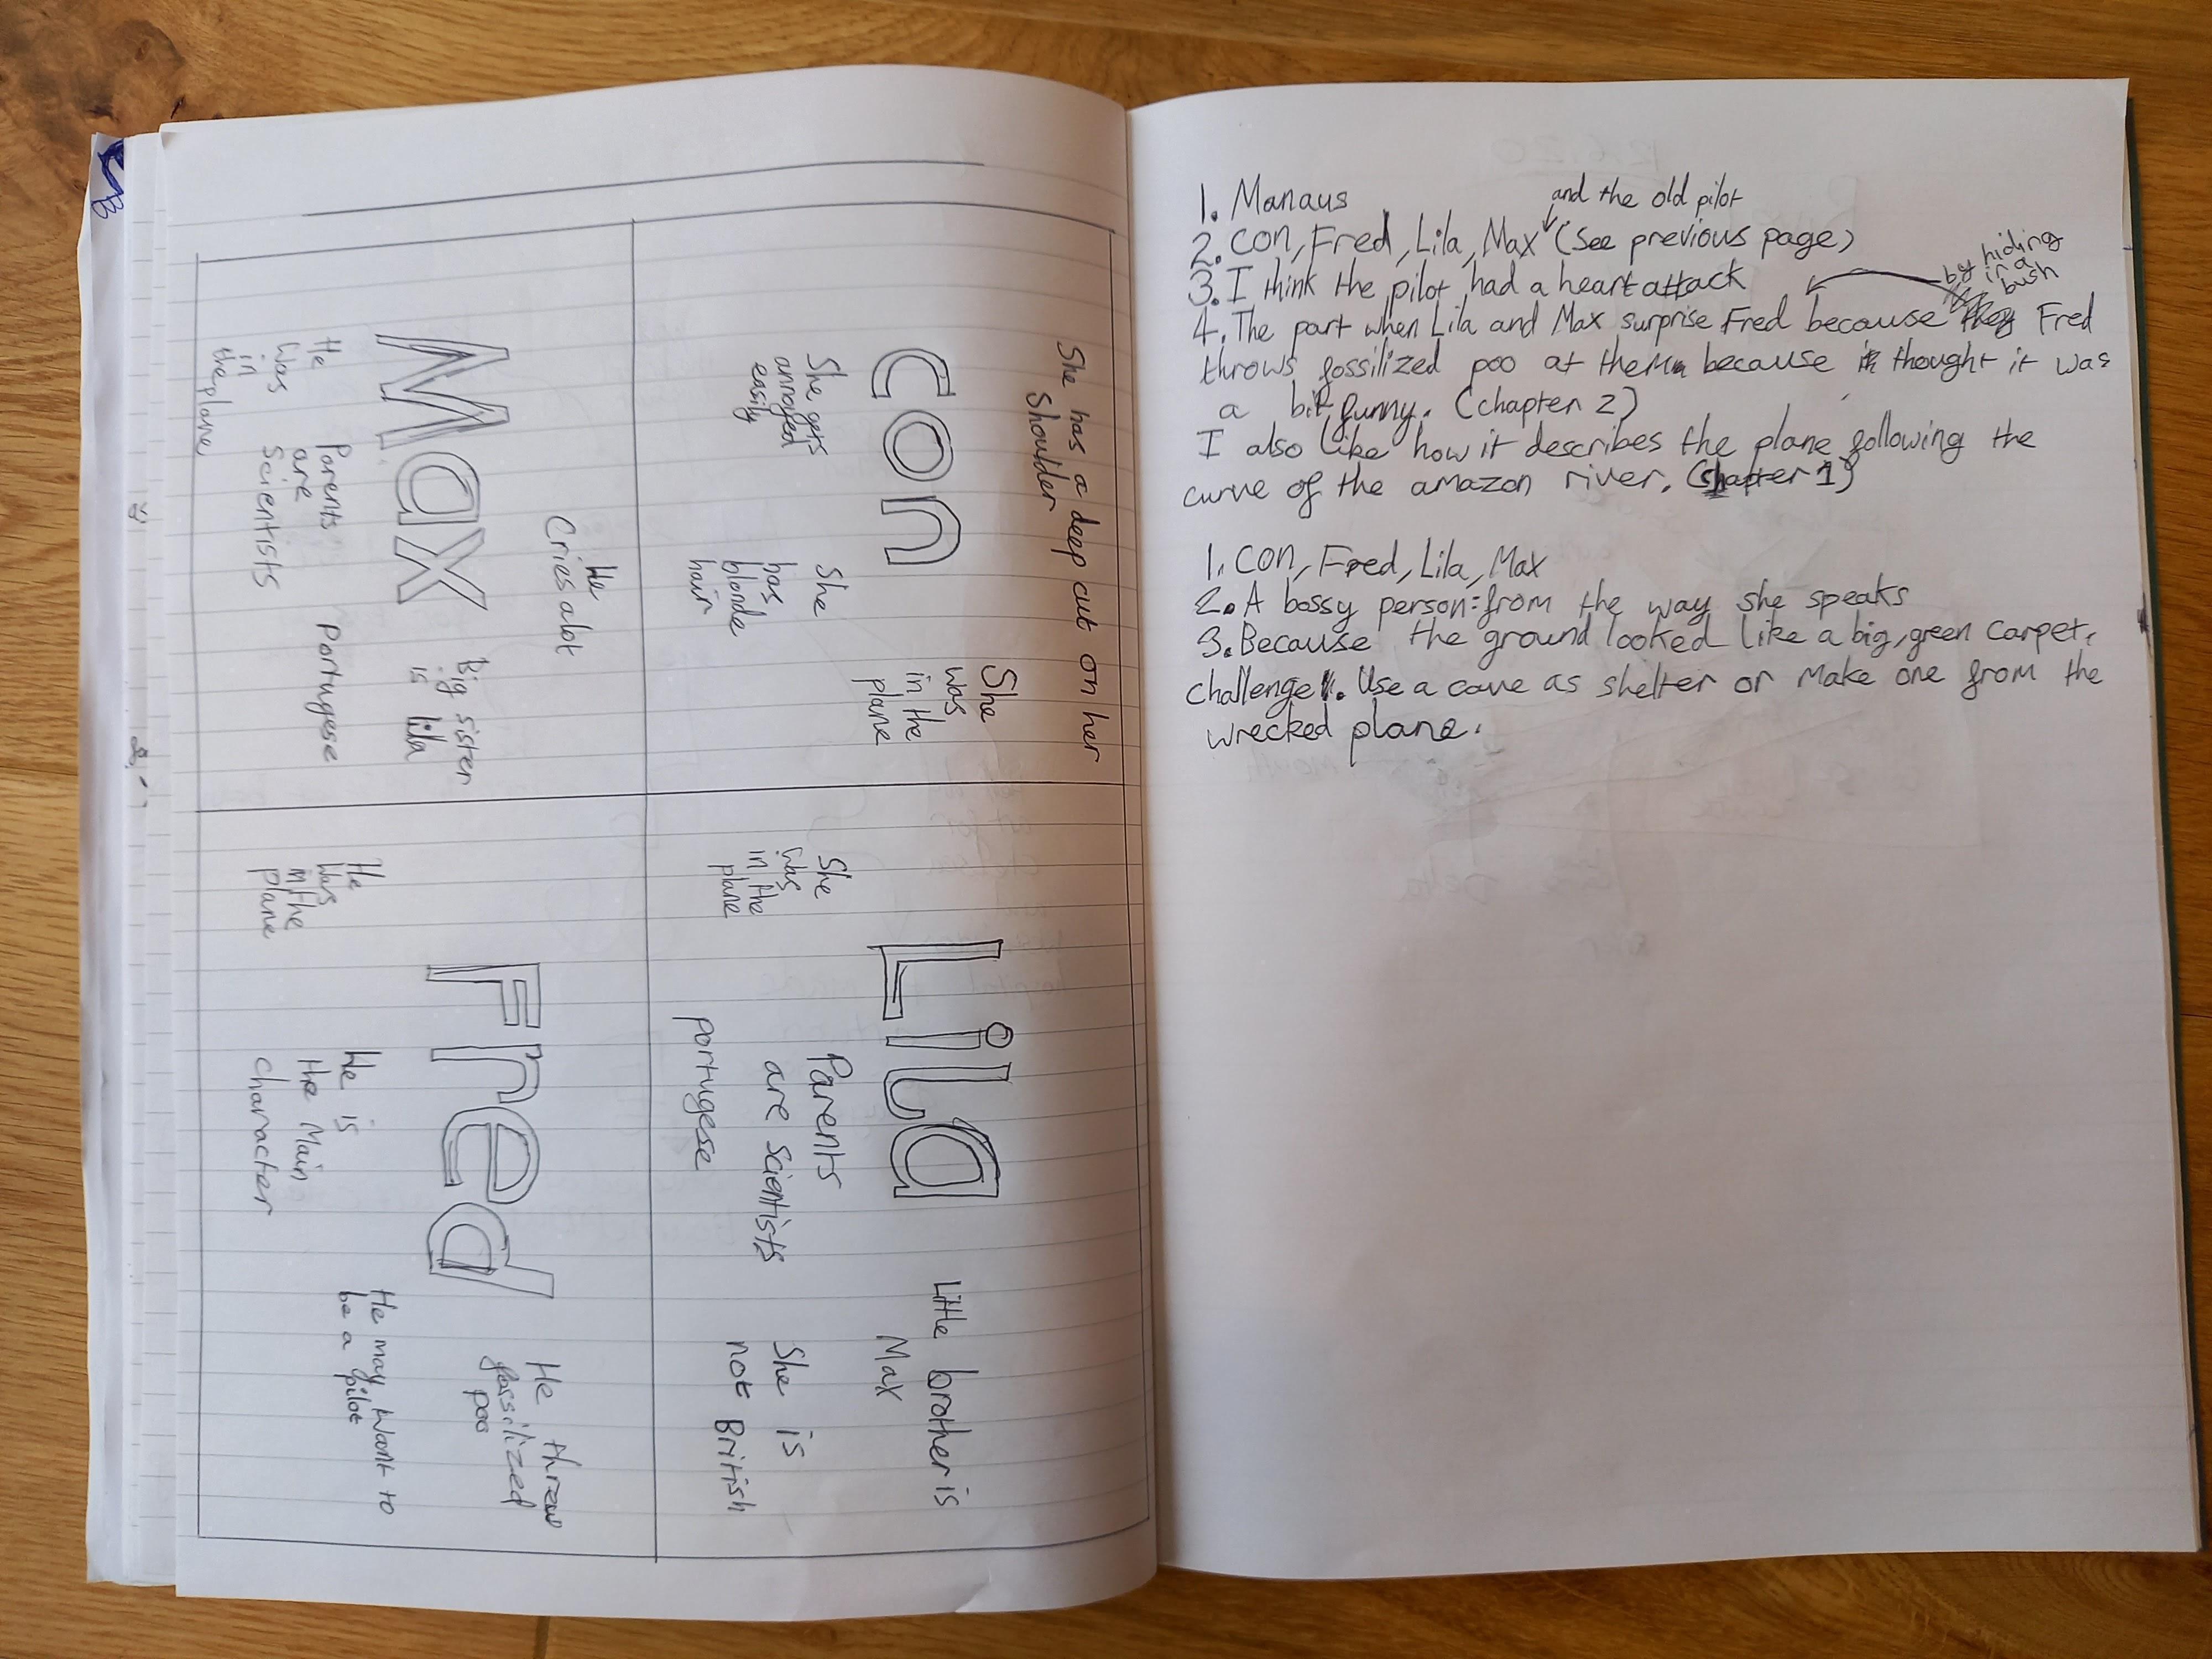 She has a deep cut on her
Shoulder
con
She
was
in the
plane
She gets
annoyed
easily
She
has
blonde
hair
Lila
Little brother is
Max
She
was
in the
plane
Parents
are Scientists
portugese
She is
not British
He
Cries alot
Max
Big sister
is Lila
He
was
in
the plane
Parents
are
Scientists
Portugese
Fred
He threw
fossilized
poo
He
was
in the
plane
He is
the Main
character
He may want to
be a pilot
and the old pilot
1. Manaus
2. con, Fred, Lila, Max (See previous page)
3. I think the pilot had a heart attack
by hiding
in a
bush
4. The part when Lila and Max surprise Fred because Fred
throws fossilized poo at them because thought it was
a bit funny. (chapter 2)
I also like how it describes the plane following the
curve of the amazon river. (chapter 1)
1. con, Fred, Lila, Max
2. A bossy person: from the way she speaks
3. Because the ground looked like a big, green carpet.
challenge. Use a cave as shelter or Make one from the
wrecked plane.